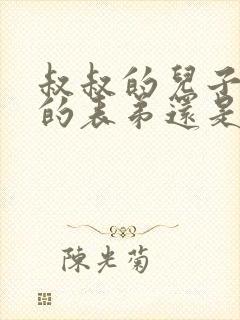 叔叔的兒子
的表弟還是
陳光菊